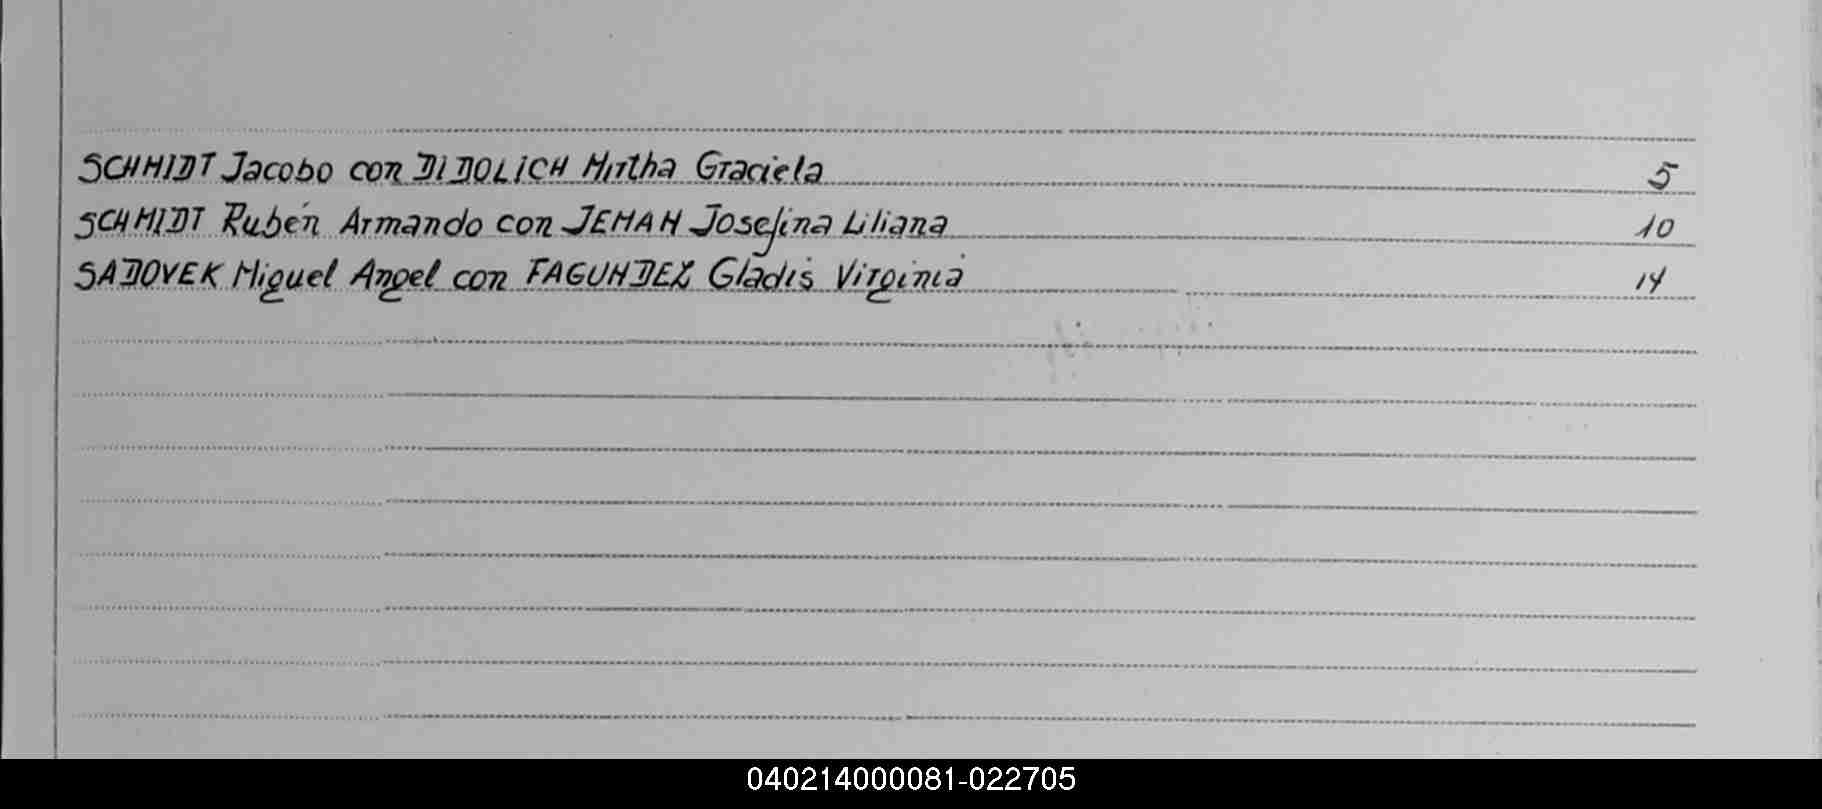 SCHMIDT Jacobo con DIDOLICH Mirtha Graciela 5
SCHMIDT Rubén Armando con JEMAN Josefina Liliana 10
SADOVEK Miguel Angel con FAGUNDEZ Gladis Virginia 14
040214000081-022705